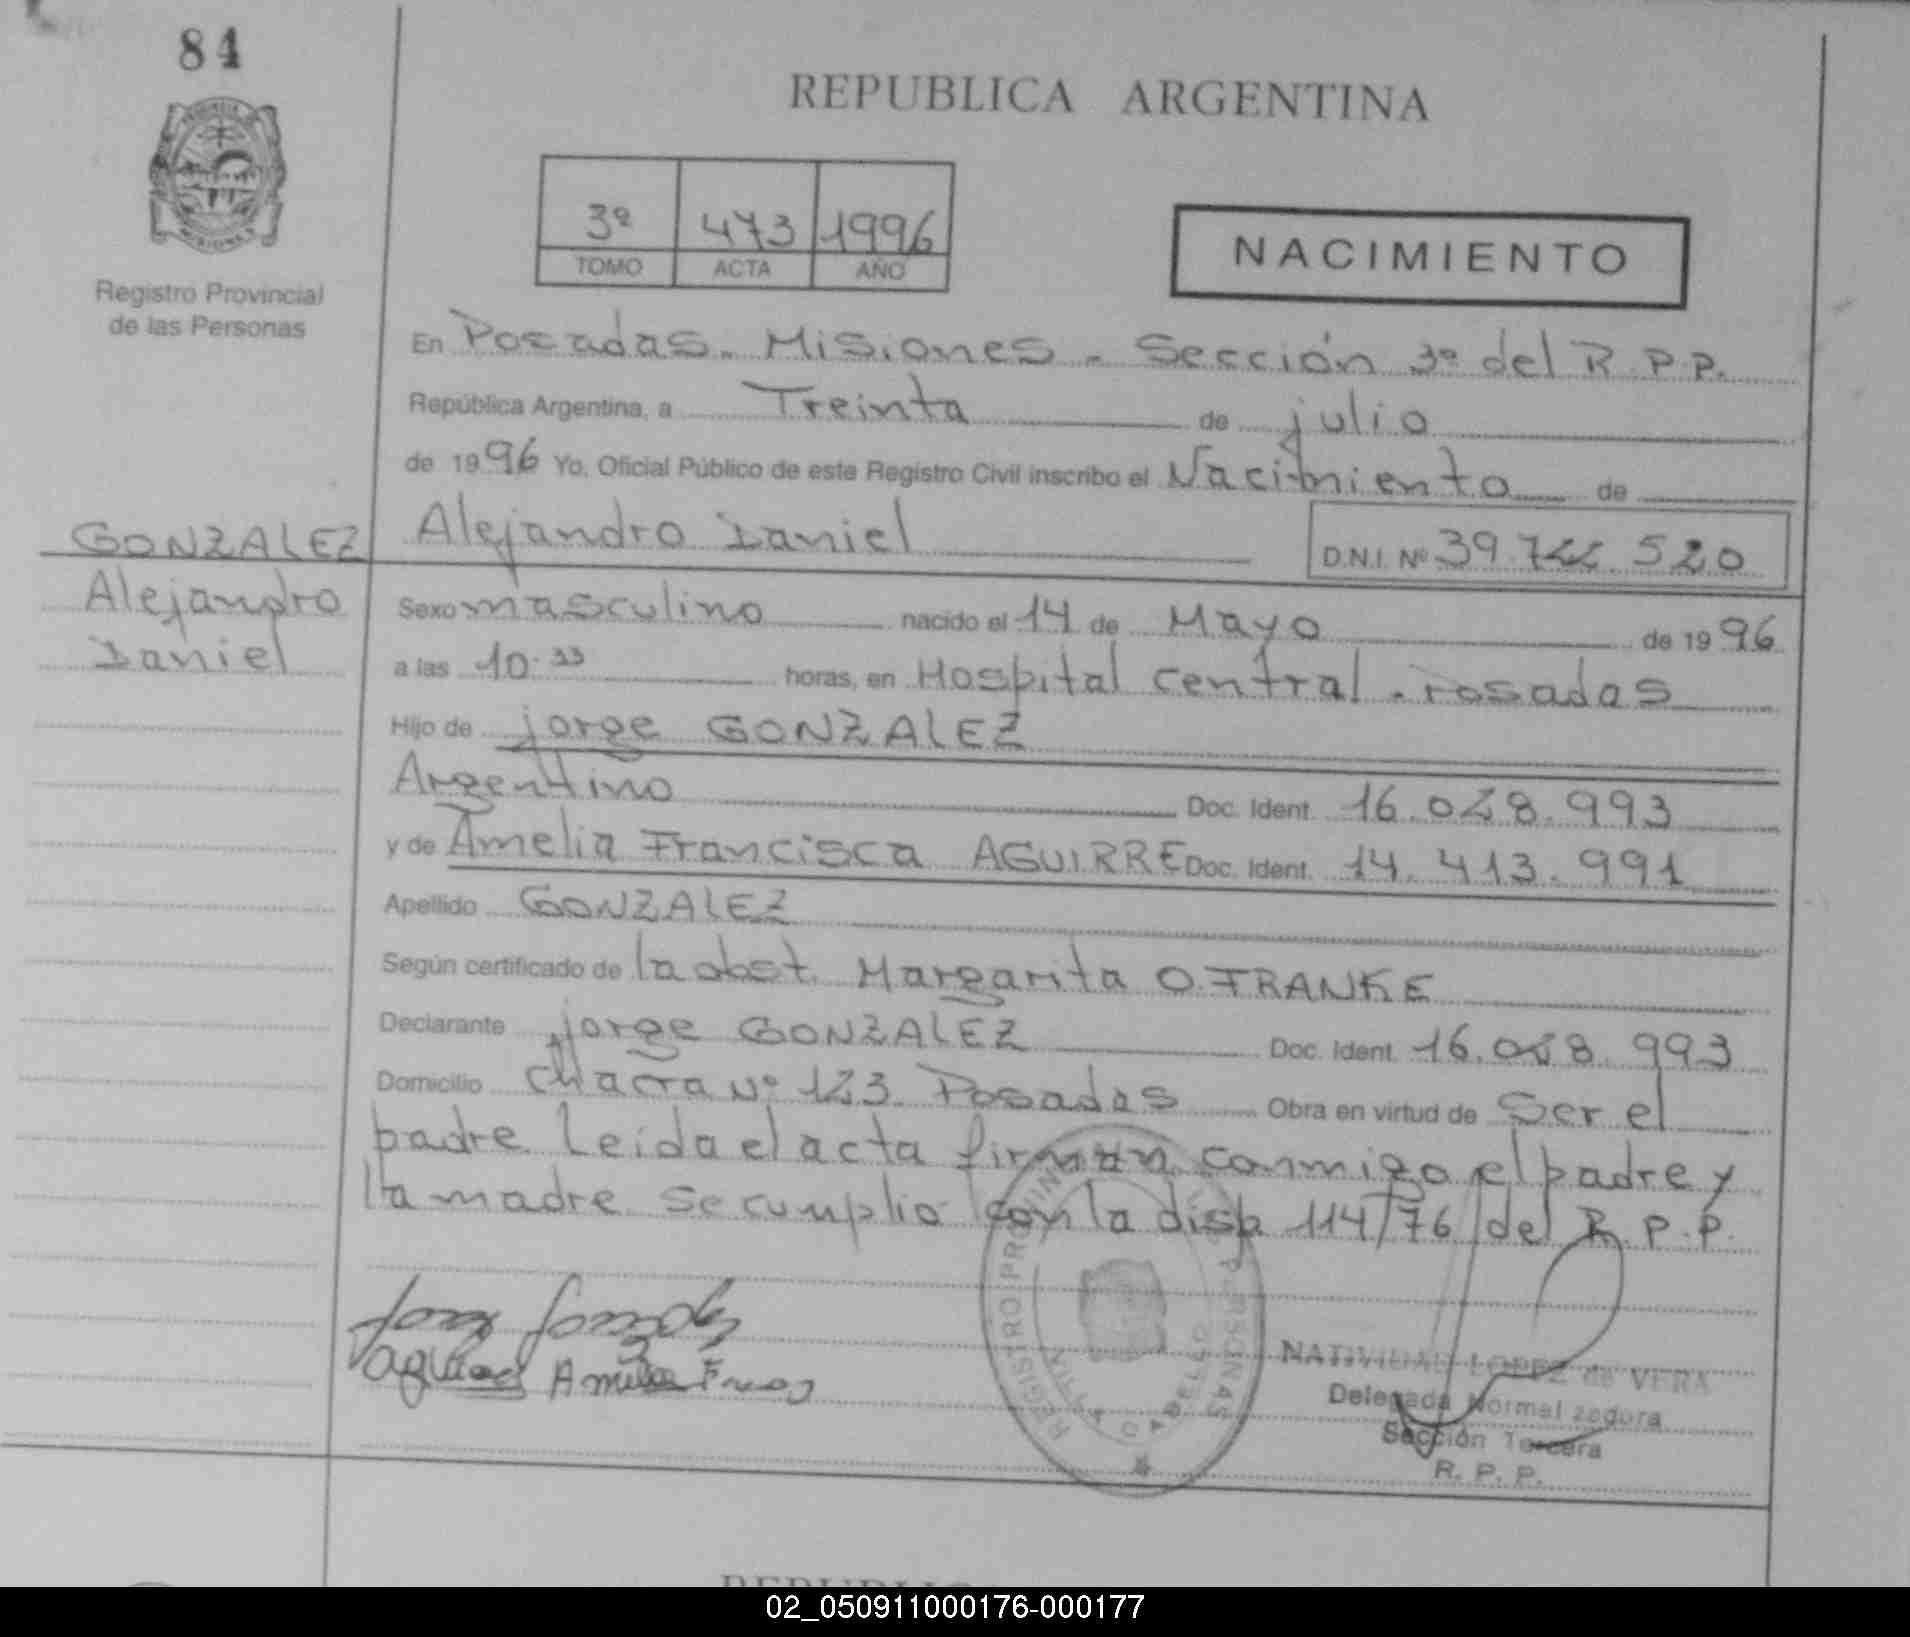 84
REPUBLICA ARGENTINA
3º 473 1996
TOMO ACTA AÑO
NACIMIENTO
Registro Provincial
de las Personas
En Posadas - Misiones - Sección 3ª del R.P.P.
República Argentina, a Treinta de julio
de 1996 Yo, Oficial Público de este Registro Civil inscribo el Nacimiento de
GONZALEZ Alejandro Daniel D.N.I. Nº 39.744.520
Alejandro
Daniel
Sexo masculino nacido el 14 de Mayo de 1996
a las 10.33 horas, en Hospital Central - Posadas
Hijo de jorge GONZALEZ
Argentino Doc. Ident. 16.048.993
y de Amelia Francisca AGUIRRE Doc. Ident. 14.413.991
Apellido GONZALEZ
Según certificado de la obst. Margarita O. FRANKE
Declarante jorge GONZALEZ Doc. Ident. 16.048.993
Domicilio Chacra Nº 123 Posadas Obra en virtud de Ser el
padre Leida el acta firman conmigo el padre y
la madre Se cumplio con la disp 114/76 del R.P.P.
REGISTRO PROVINCIAL PERSONAS
VILLA CABELLO
NATIVIDAD LOPEZ de VERA
Delegada Normalizadora
Sección Tercera
R. P. P.
02_050911000176-000177